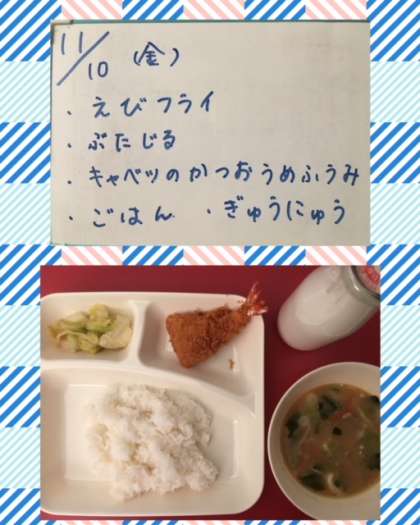 11/10 (金)
・えびフライ
・ぶたじる
・キャベツのかつおうめふうみ
・ごはん ・ぎゅうにゅう